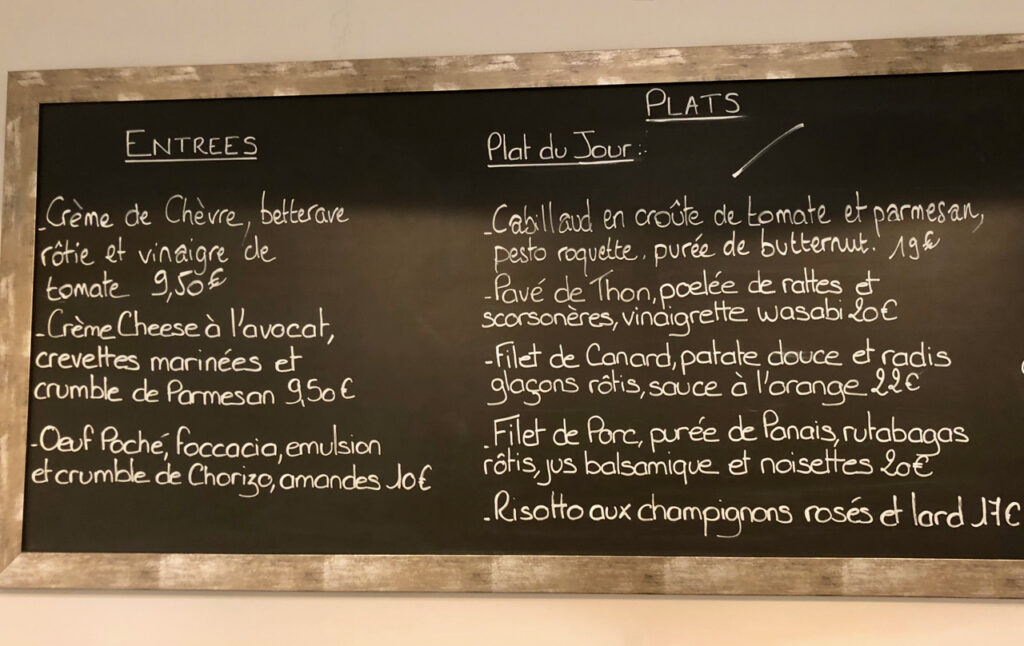 ENTREES
-Crème de Chèvre, betterave
rôtie et vinaigre de
tomate 9,50€
-Crème Cheese à l'avocat,
crevettes marinées et
crumble de Parmesan 9,50€
-Oeuf Poché, foccacia, emulsion
et crumble de Chorizo, amandes 10€
PLATS
Plat du Jour :
-Cabillaud en croûte de tomate et parmesan,
pesto roquette, purée de butternut. 19€
-Pavé de Thon, poelée de rattes et
scorsonères, vinaigrette wasabi 20€
-Filet de Canard, patate douce et radis
glaçons rôtis, sauce à l'orange 22€
-Filet de Porc, purée de Panais, rutabagas
rôtis, jus balsamique et noisettes 20€
-Risotto aux champignons rosés et lard 17€